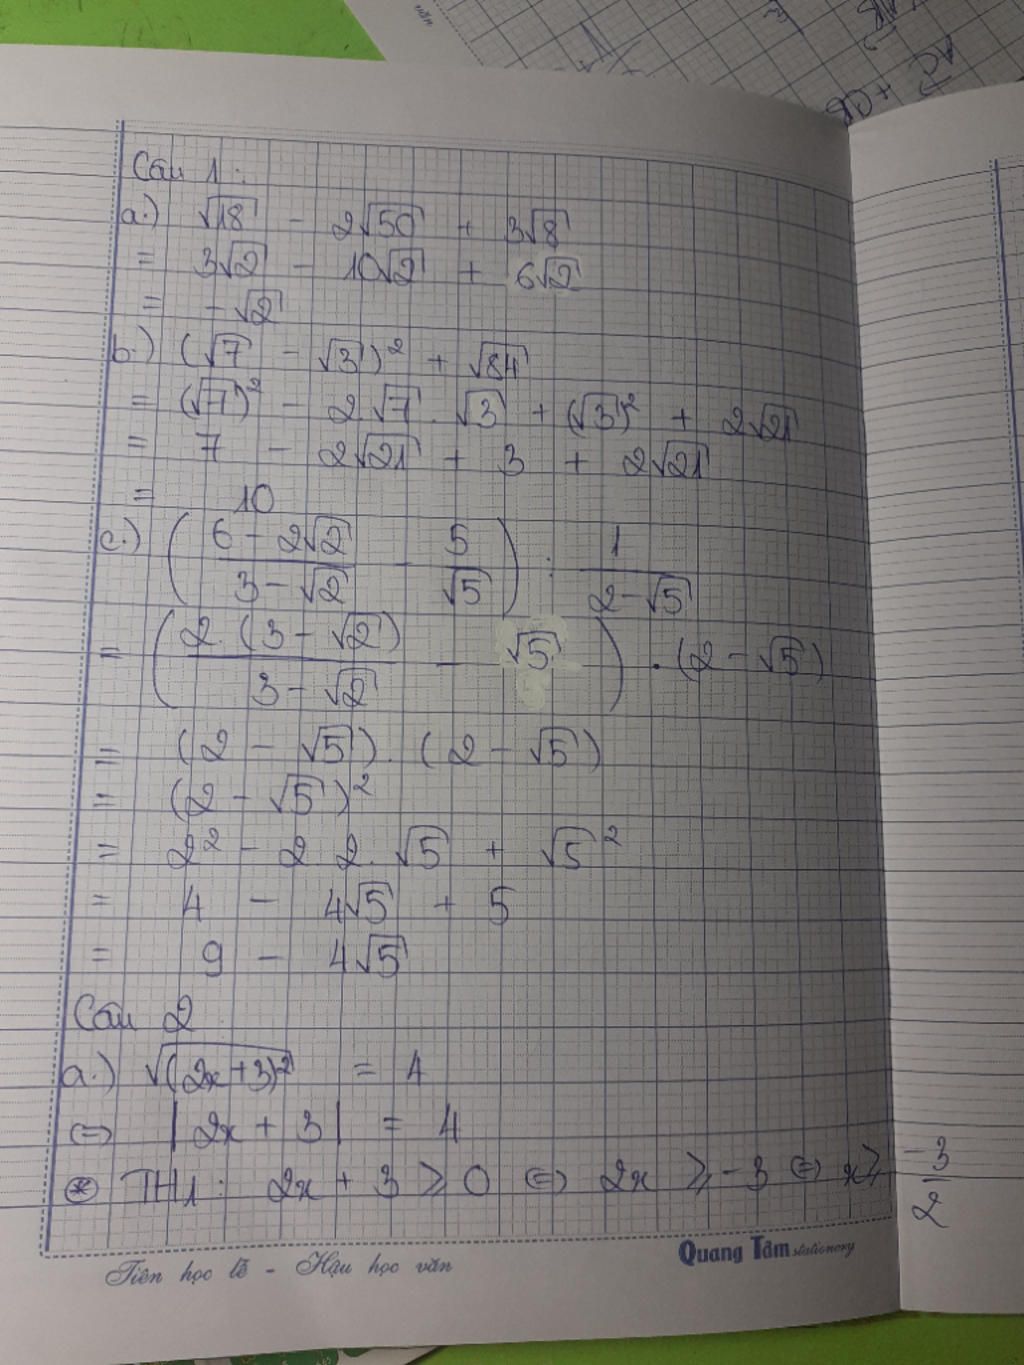 văn
Câu 1:
a.) √18 - 2√50 + 3√8
= 3√2 - 10√2 + 6√2
= -√2
b.) (√7 - √3)² + √84
= (√7)² - 2.√7.√3 + (√3)² + 2√21
= 7 - 2√21 + 3 + 2√21
= 10
c.) ( (6 - 2√2)/(3 - √2) - 5/√5 ) : 1/(2 - √5)
= ( 2.(3 - √2)/(3 - √2) - √5 ) . (2 - √5)
= (2 - √5).(2 - √5)
= (2 - √5)²
= 2² - 2.2.√5 + √5²
= 4 - 4√5 + 5
= 9 - 4√5
Câu 2
a.) √(2x+3)² = 4
⇔ |2x + 3| = 4
⊛ TH1: 2x + 3 ≥ 0 ⇔ 2x ≥ -3 ⇔ x ≥ -3/2
Tiên học lễ - Hậu học văn
Quang Tâm stationery